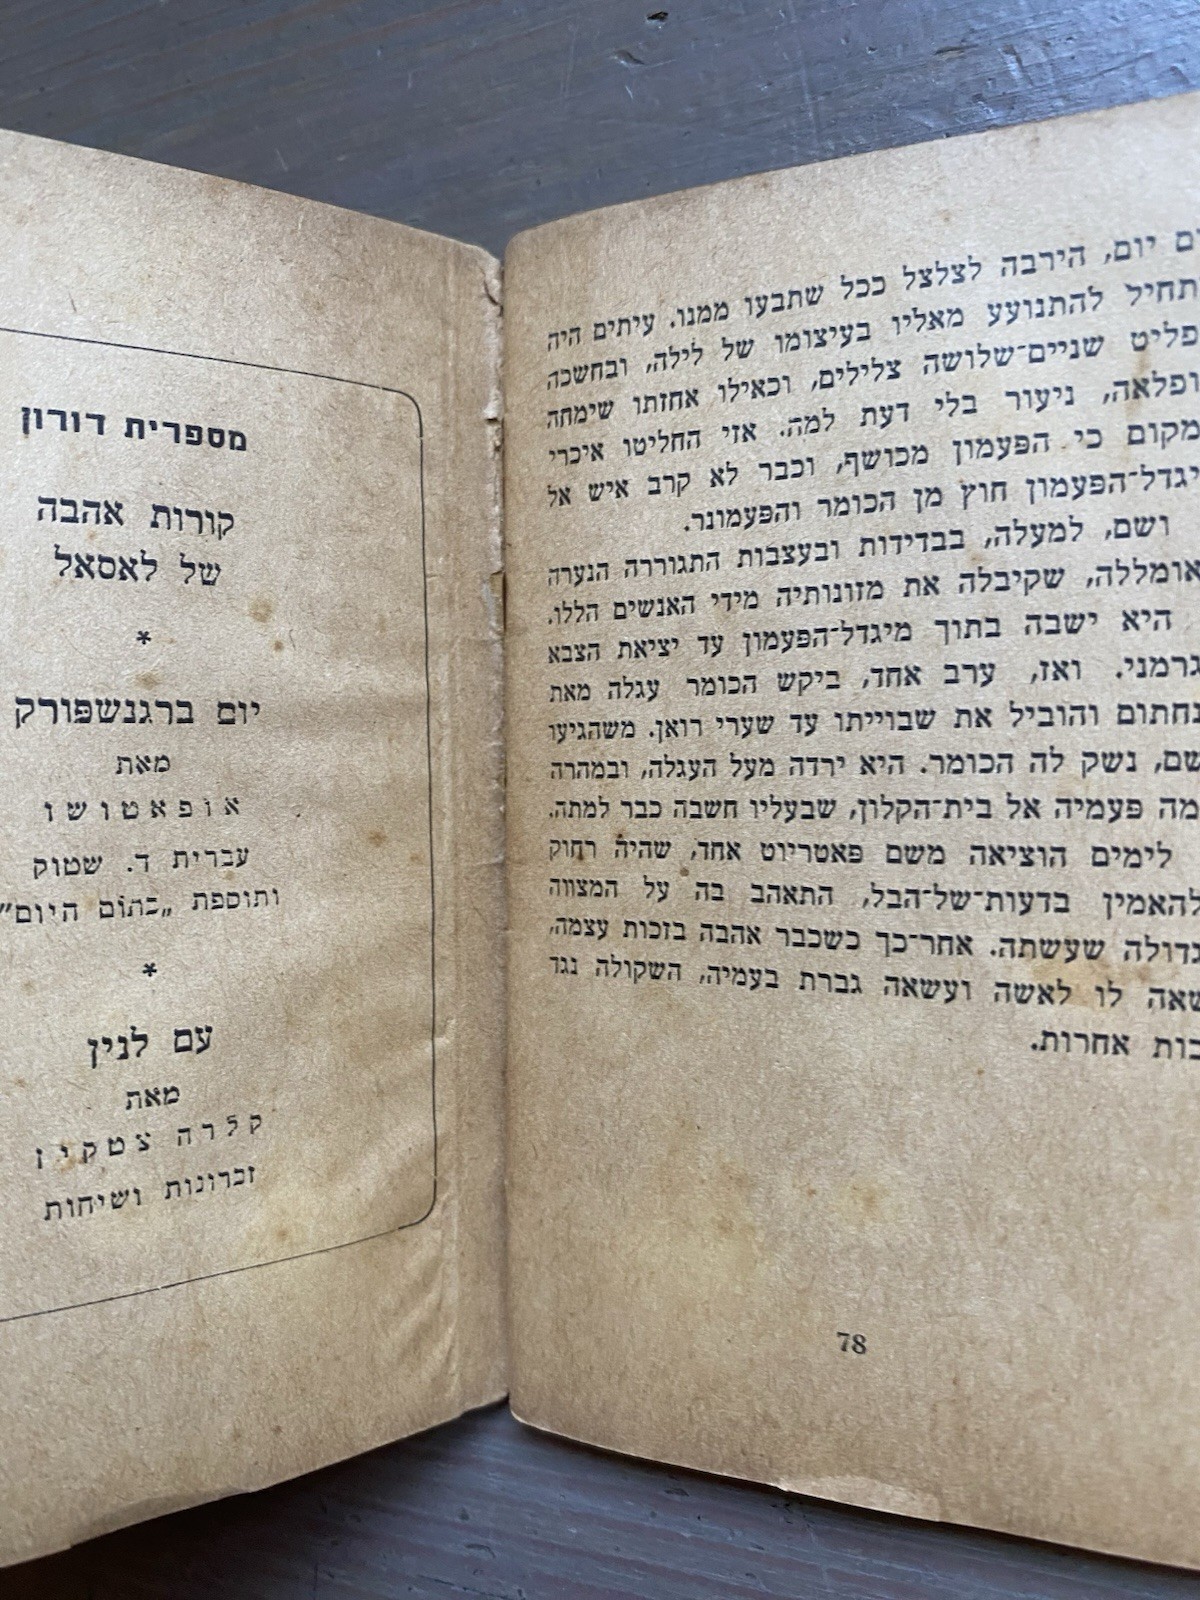 יום, הירבה לצלצל ככל שתבעו ממנו. עיתים היה
להתנועע מאליו בעיצומו של לילה, ובחשכה
שניים־שלושה צלילים, וכאילו אחזתו שימחה
ניעור בלי דעת למה. אזי החליטו איכרי
כי הפעמון מכושף, וכבר לא קרב איש אל
חוץ מן הכומר והפעמונר.
ושם, למעלה, בבדידות ובעצבות התגוררה הנערה
שקיבלה את מזונותיה מידי האנשים הללו.
היא ישבה בתוך מיגדל־הפעמון עד יציאת הצבא
ואז, ערב אחד, ביקש הכומר עגלה מאת
והוביל את שבוייתו עד שערי רואן. משהגיעו
שם, נשק לה הכומר. היא ירדה מעל העגלה, ובמהרה
פעמיה אל בית־הקלון, שבעליו חשבה כבר למתה.
לימים הוציאה משם פאטריוט אחד, שהיה רחוק
להאמין בדעות־של־הבל, התאהב בה על המצווה
שעשתה. אחר־כך כשכבר אהבה בזכות עצמה,
לו לאשה ועשאה גברת בעמיה, השקולה נגד
אחרות.
78
מספרית דורון
קורות אהבה
של לאסאל
*
יום ברגנשפורק
מאת
אופאטושו
עברית ד. שטוק
ותוספת „בתום היום"
*
עם לנין
מאת
קלרה צטקין
זכרונות ושיחות